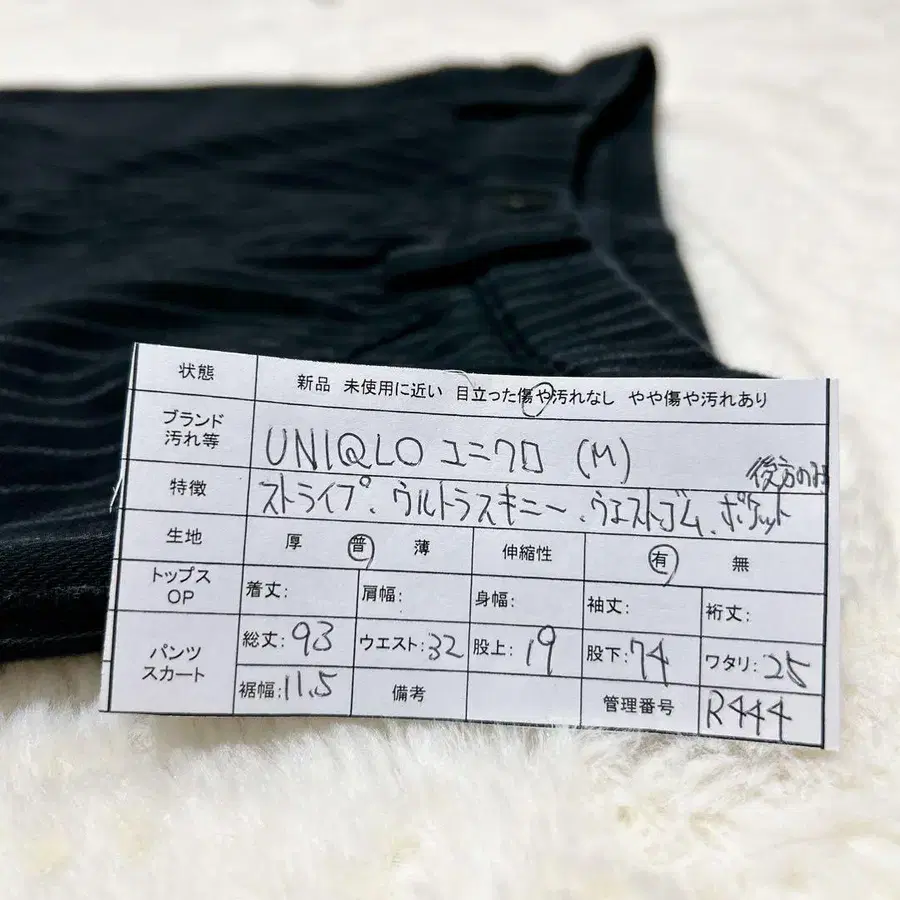 状態 新品 未使用に近い 目立った傷や汚れなし やや傷や汚れあり
ブランド 汚れ等 UNIQLO ユニクロ (M)
後方のみ
特徴 ストライプ、ウルトラスキニー、ウエストゴム、ポケット
生地 厚 普 薄 伸縮性 有 無
トップス OP 着丈: 肩幅: 身幅: 袖丈: 裄丈:
パンツ スカート 総丈:93 ウエスト:32 股上:19 股下:74 ワタリ:25
裾幅:11.5 備考 管理番号 R444